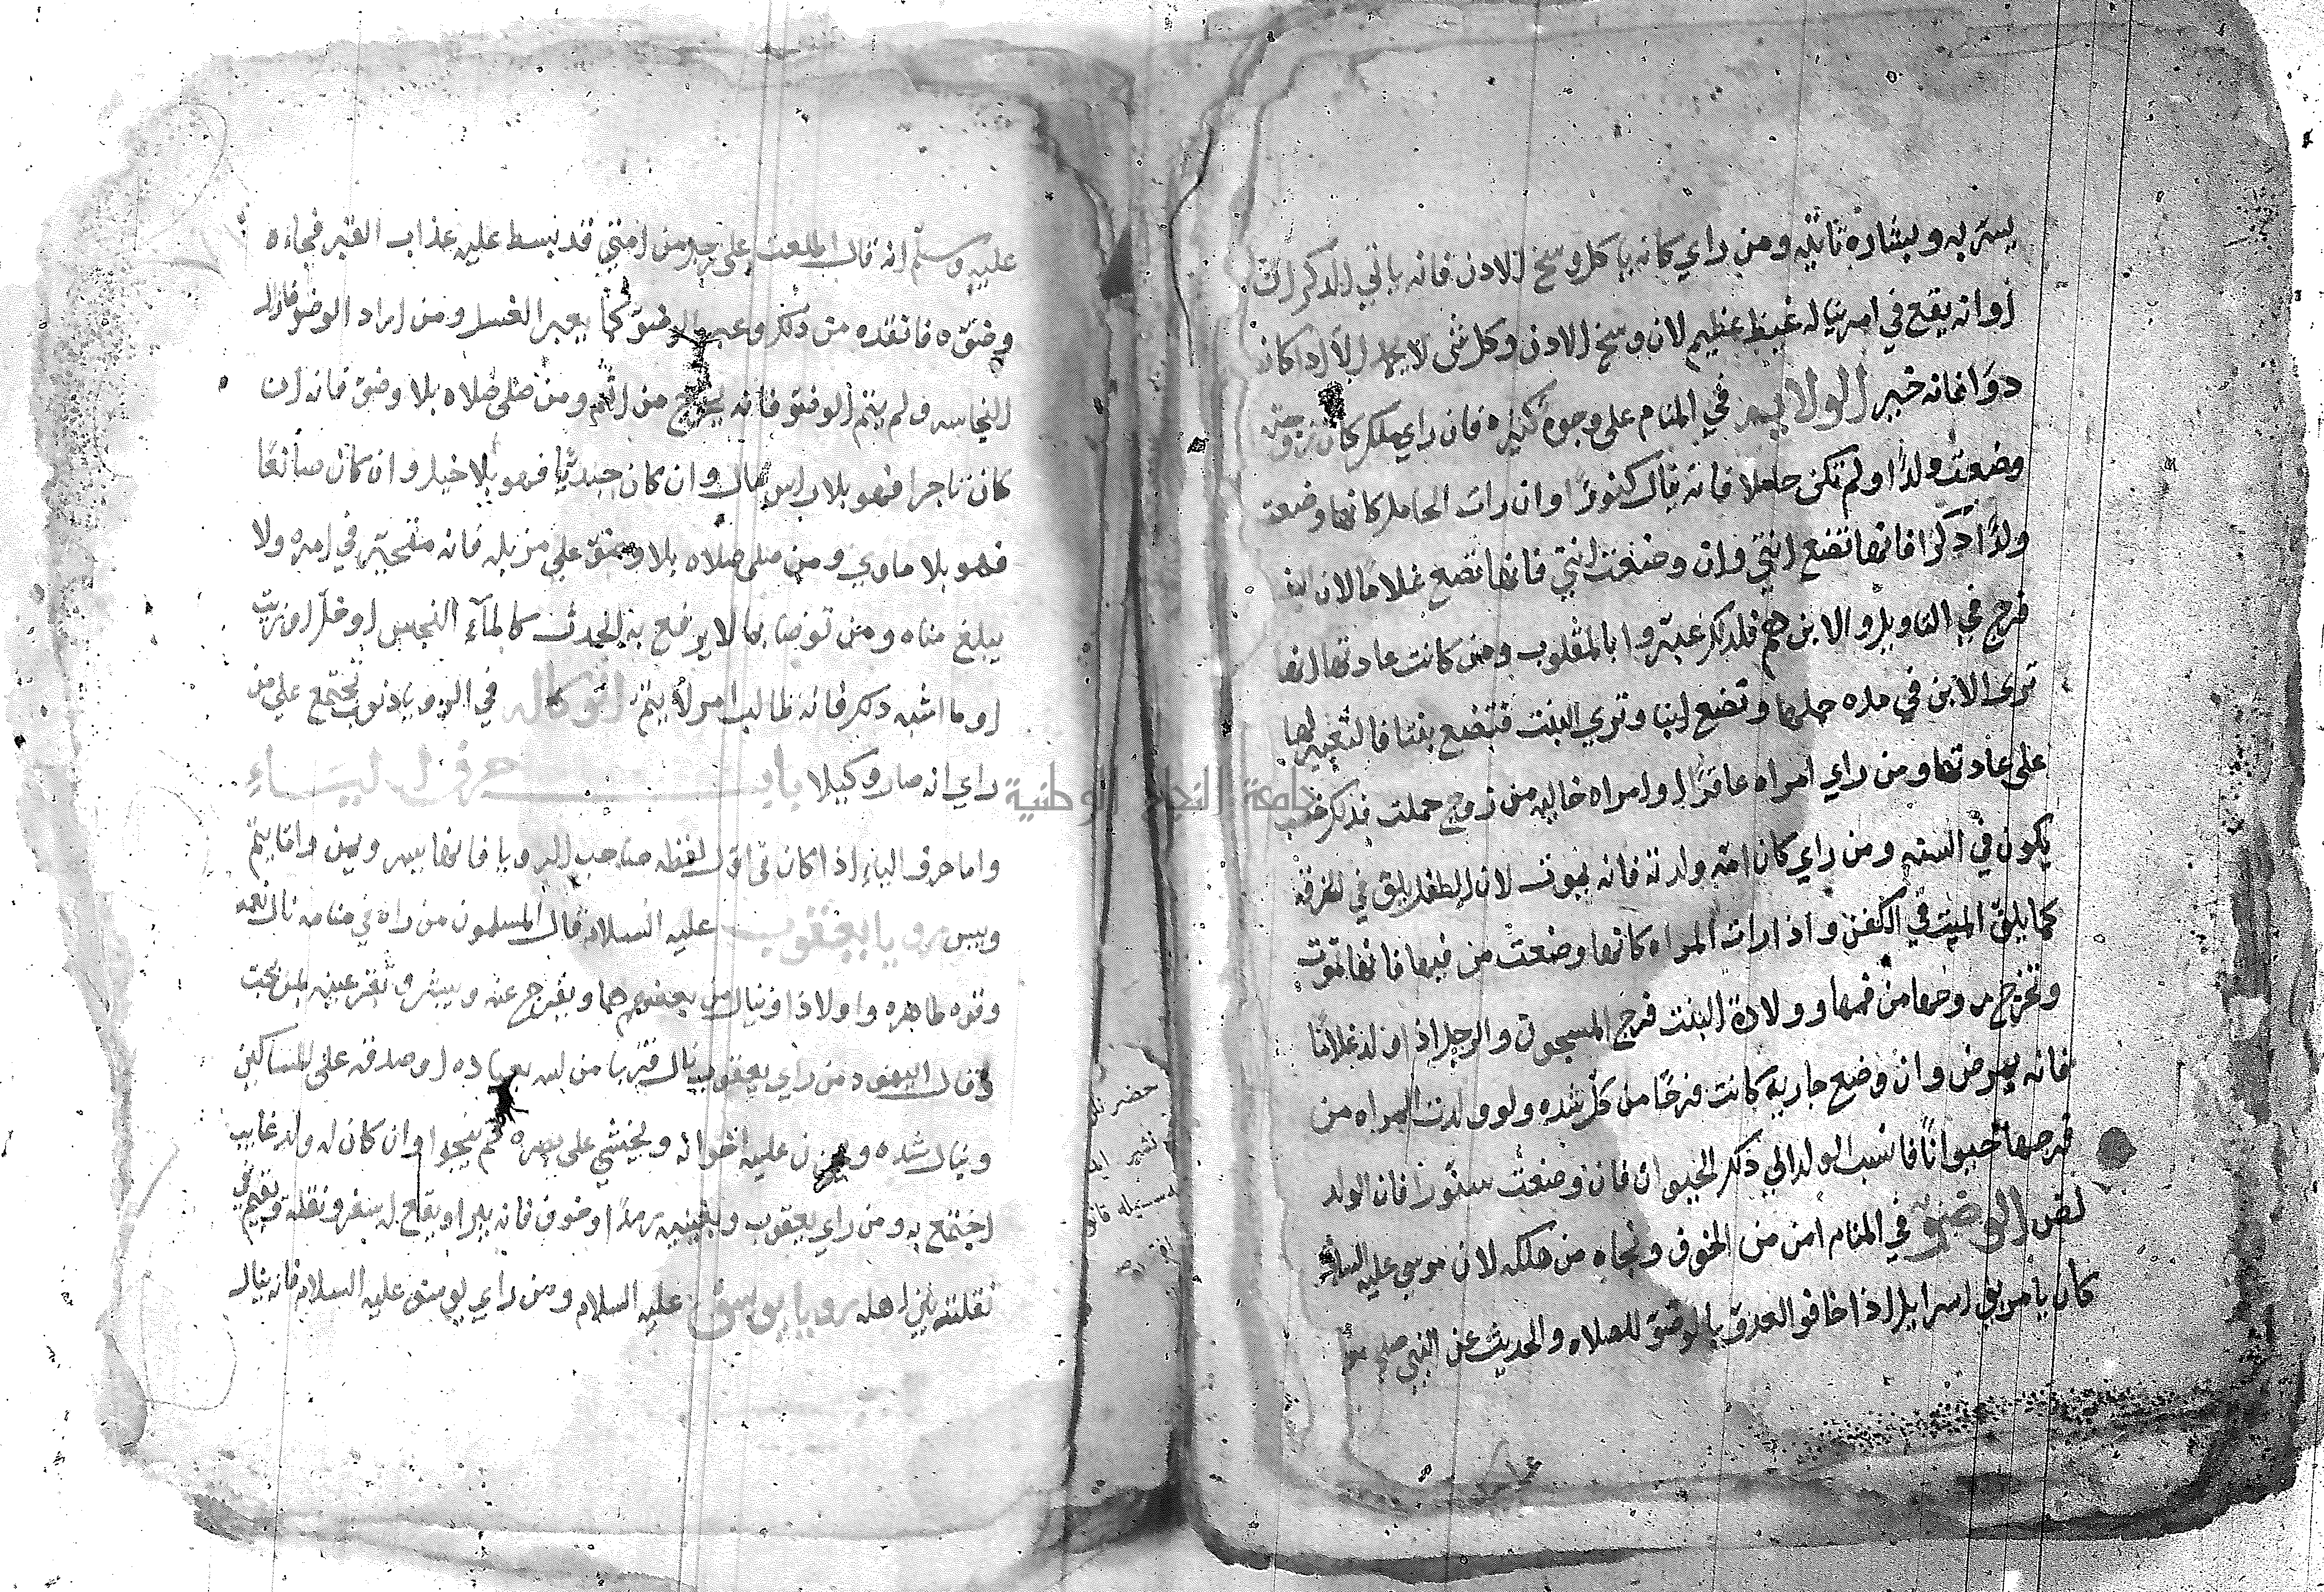 يستر به وبشاره ثانيه ومن راي كانه ياكل وسخ الادن فانه ياتي الدكران
او انه يقع في امر يناله غيظ عظيم لان وسخ الادن وكل شي لا يوكل الا اذا كان
دوا فانه خير الولاده في المنام علي وجوه كثيره فان راي ملك كان زوجته
وضعت ولدا ولم تكن حاملا فانه ينال كنوزا وان رات الحامل كانها وضعت
ولدا ذكرا فانها تضع انثي وان وضعت انثي فانها تضع غلاما لان البنت
فرج في التاويل والابن هم فلدلك عبروا بالمقلوب ومن كانت عادتها انها
تري الابن في مده حملها وتضع ابنا وتري البنت فتضع بنتا فالتعبير لها
علي عادتها ومن راي امراه عاقرا او امراه خاليه من زوج حملت فدلك خصب
يكون في السنه ومن راي كان امه ولدته فانه يموت لان الطفل يلف في الخرقه
كما يلف الميت في الكفن واذا رات المراه كانها وضعت من فيها فانها تموت
وتخرج روحها من فمها وولادة البنت فرج المسجون والرجل اذا ولد غلاما
فانه يمرض وان وضع جاريه كانت فرحا من كل شده ولو ولدت المراه من
فرجها حيوانا فانسب الولد الي ذكر الحيوان فان وضعت سنورا فان الولد
لص الوضوء في المنام امن من الخوف ونجاه من هلكه لان موسي عليه السلام
كان يامر بني اسرايل اذا خافوا العدو بالوضوء للصلاه والحديث عن النبي صلي
عليه وسلم انه قال اطلعت علي رجل من امتي قد بسط عليه عذاب القبر فجاءه
وضوءه فانقده من ذلك وعبر الوضوء كما يعبر الغسل ومن اراد الوضو فازال
النجاسه ولم يتم الوضوء فانه يخرج من اثم ومن صلي صلاه بلا وضوء فانه ان
كان تاجرا فهو بلا راس مال وان كان جنديا فهو بلا خيل وان كان صانعا
فهو بلا ماوي ومن صلي صلاه بلا وضوء علي مزبله فانه متحير في امره ولا
يبلغ مناه ومن توضا بما لا يرفع به الحدث كالماء النجس او خل او زيت
او ما اشبه دلك فانه طالب امر لا يتم الوكاله في الرويا ذنوب تجتمع علي من
راي انه صار وكيلا باب حرف اليـــاء
واما حرف الياء اذا كان في اول لفظه صاحب الرويا فانها يسر ويمن واما يتم
ويبس رويا يعقوب عليه السلام قال المسلمون من راه في منامه نال نعمه
وقوه طاهره واولادا وينال من بعضهم هما ويفرج عنه ويبشر وتقر عينه بمن يحب
وقال اليهود من راي يعقوب نال قربا من الله بعباده او صدقه علي المساكين
وينال شده ويحزن عليه اخوانه ويخشي علي بصره ثم ينجوا وان كان له ولد غايب
اجتمع به ومن راي يعقوب وبعينيه رمدا او خوف فانه يبرا ويقع له سفر ونقله ويقيم في
نقلته بين اهله رويا يوسف عليه السلام ومن راي يوسف عليه السلام فانه ينال
جامعة النجاح الوطنية